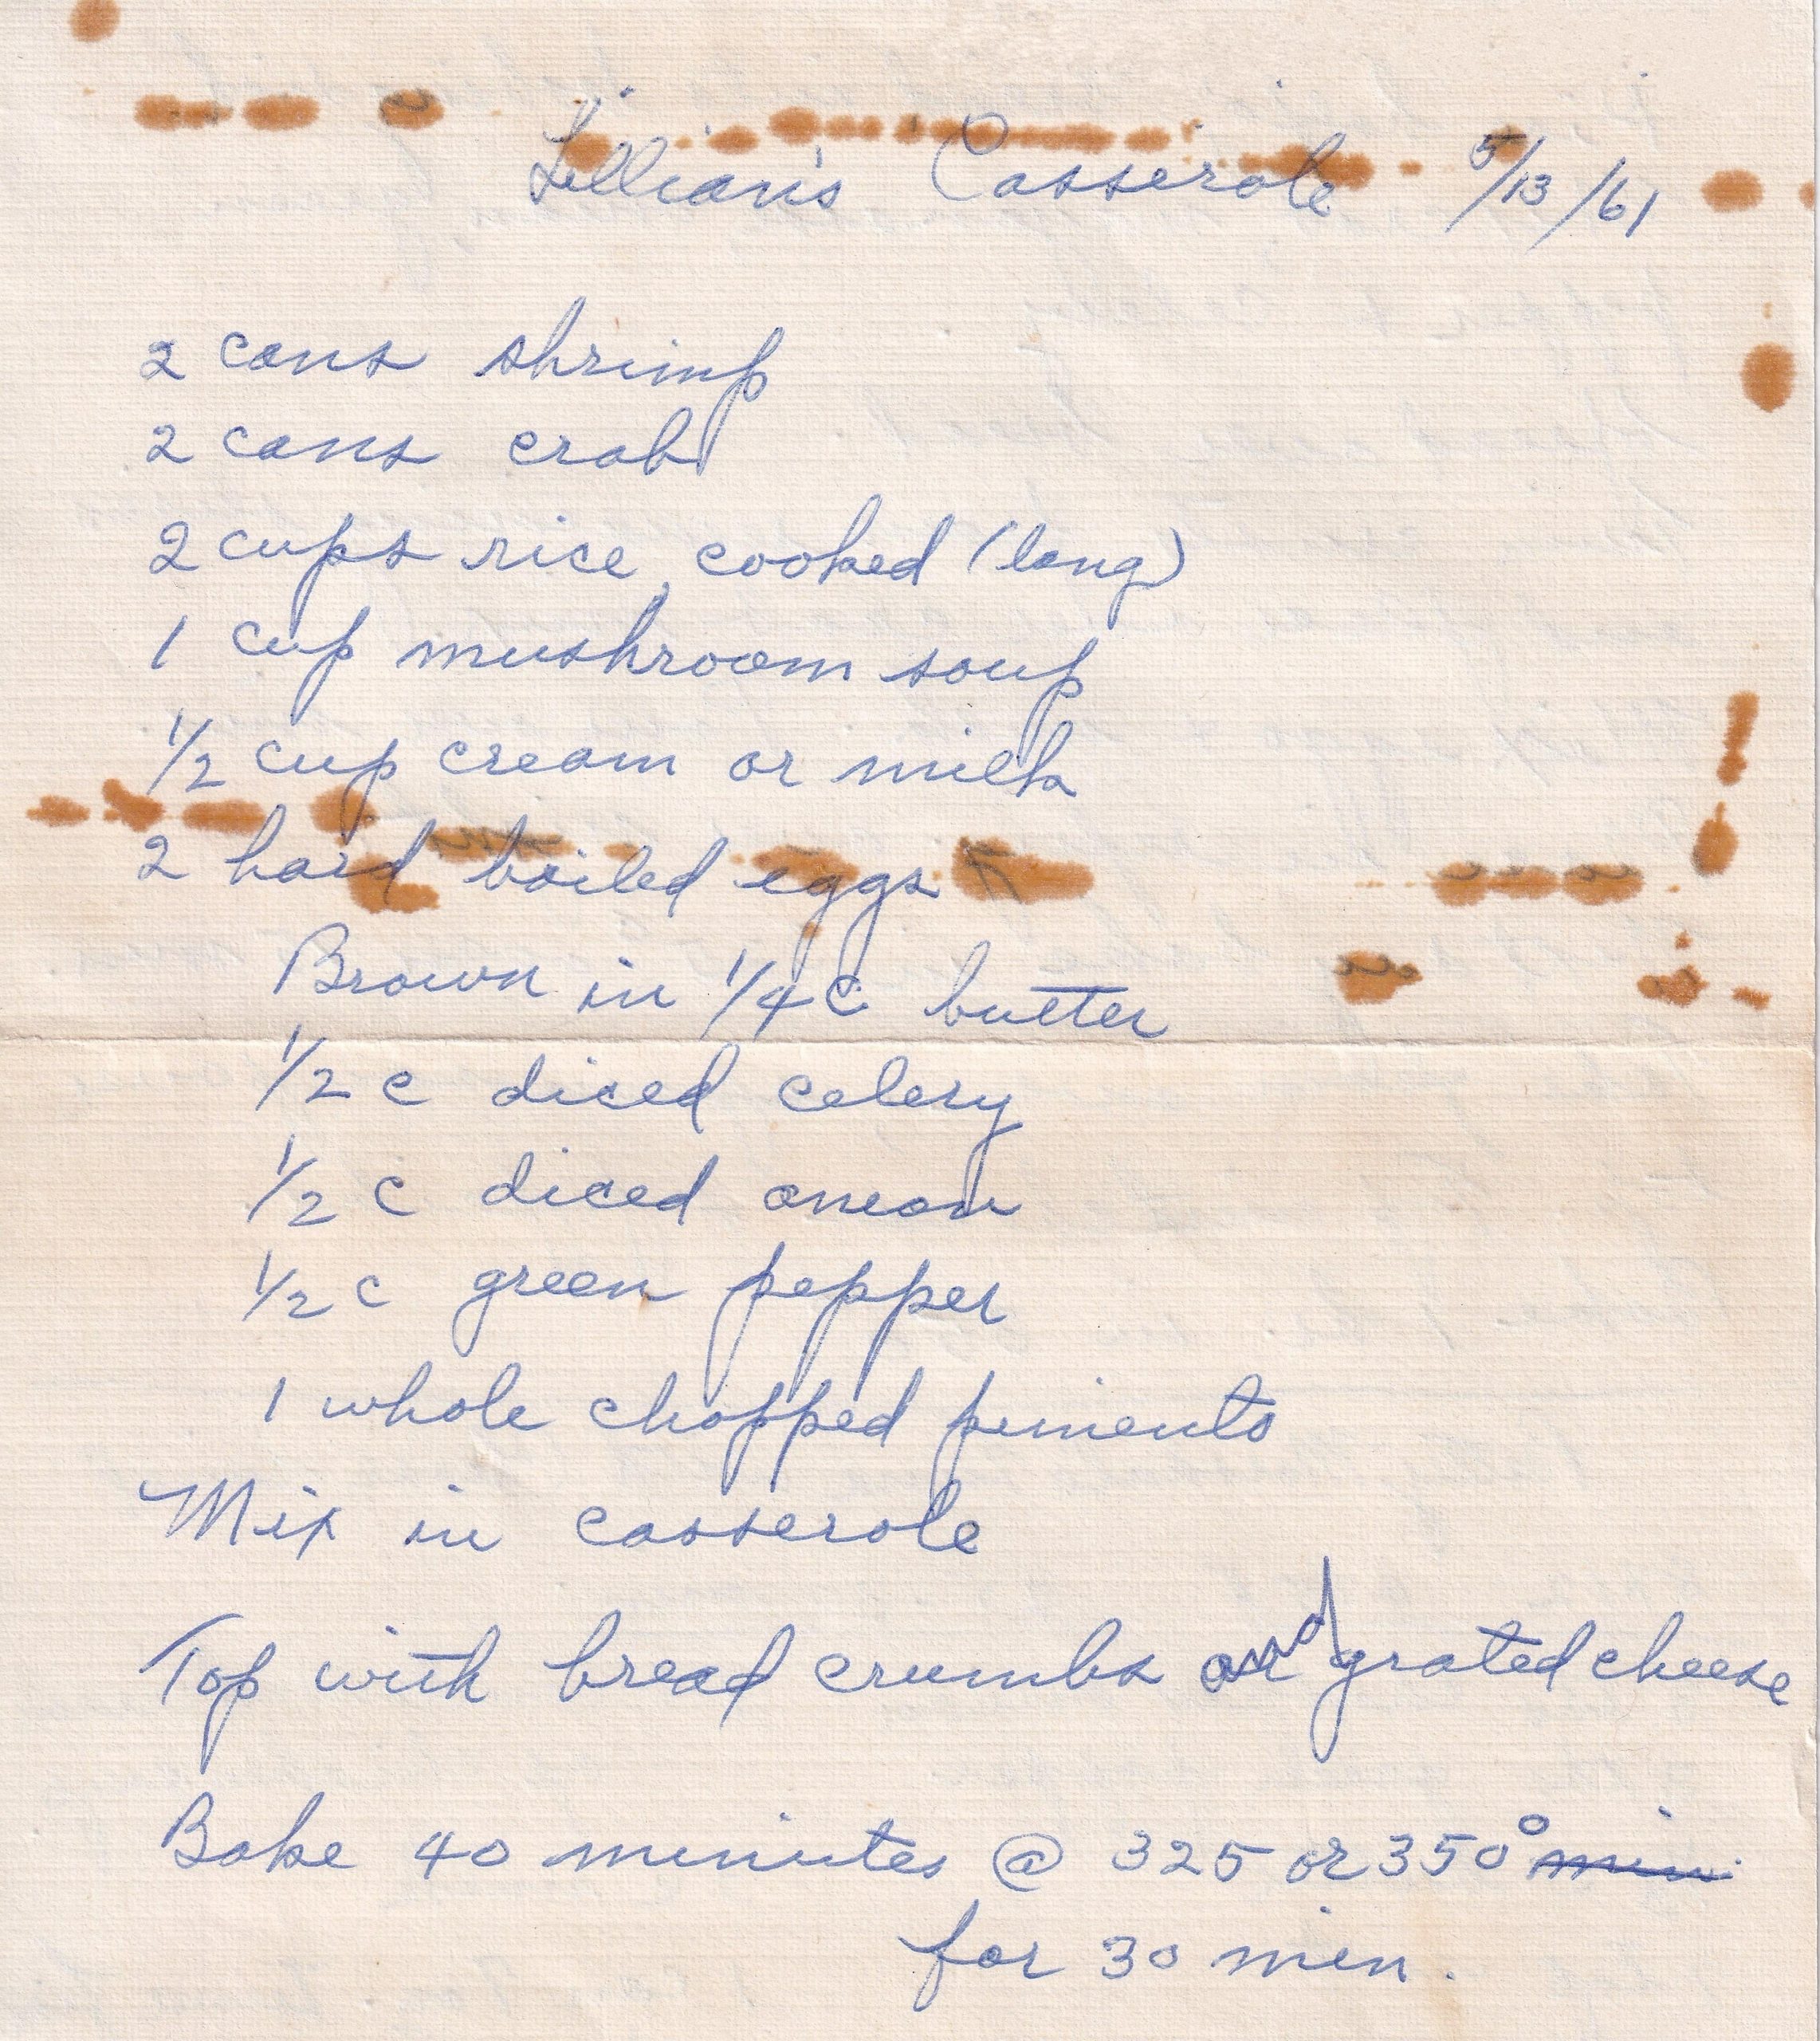 Lillian's Casserole 5/13/61
2 cans shrimp
2 cans crab
2 cups rice, cooked (long)
1 cup mushroom soup
1/2 cup cream or milk
2 hard boiled eggs
Brown in 1/4 c butter
1/2 c diced celery
1/2 c diced onion
1/2 c green pepper
1 whole chopped pimento
Mix in casserole
Top with bread crumbs and grated cheese
Bake 40 minutes @ 325 or 350° min
for 30 min.